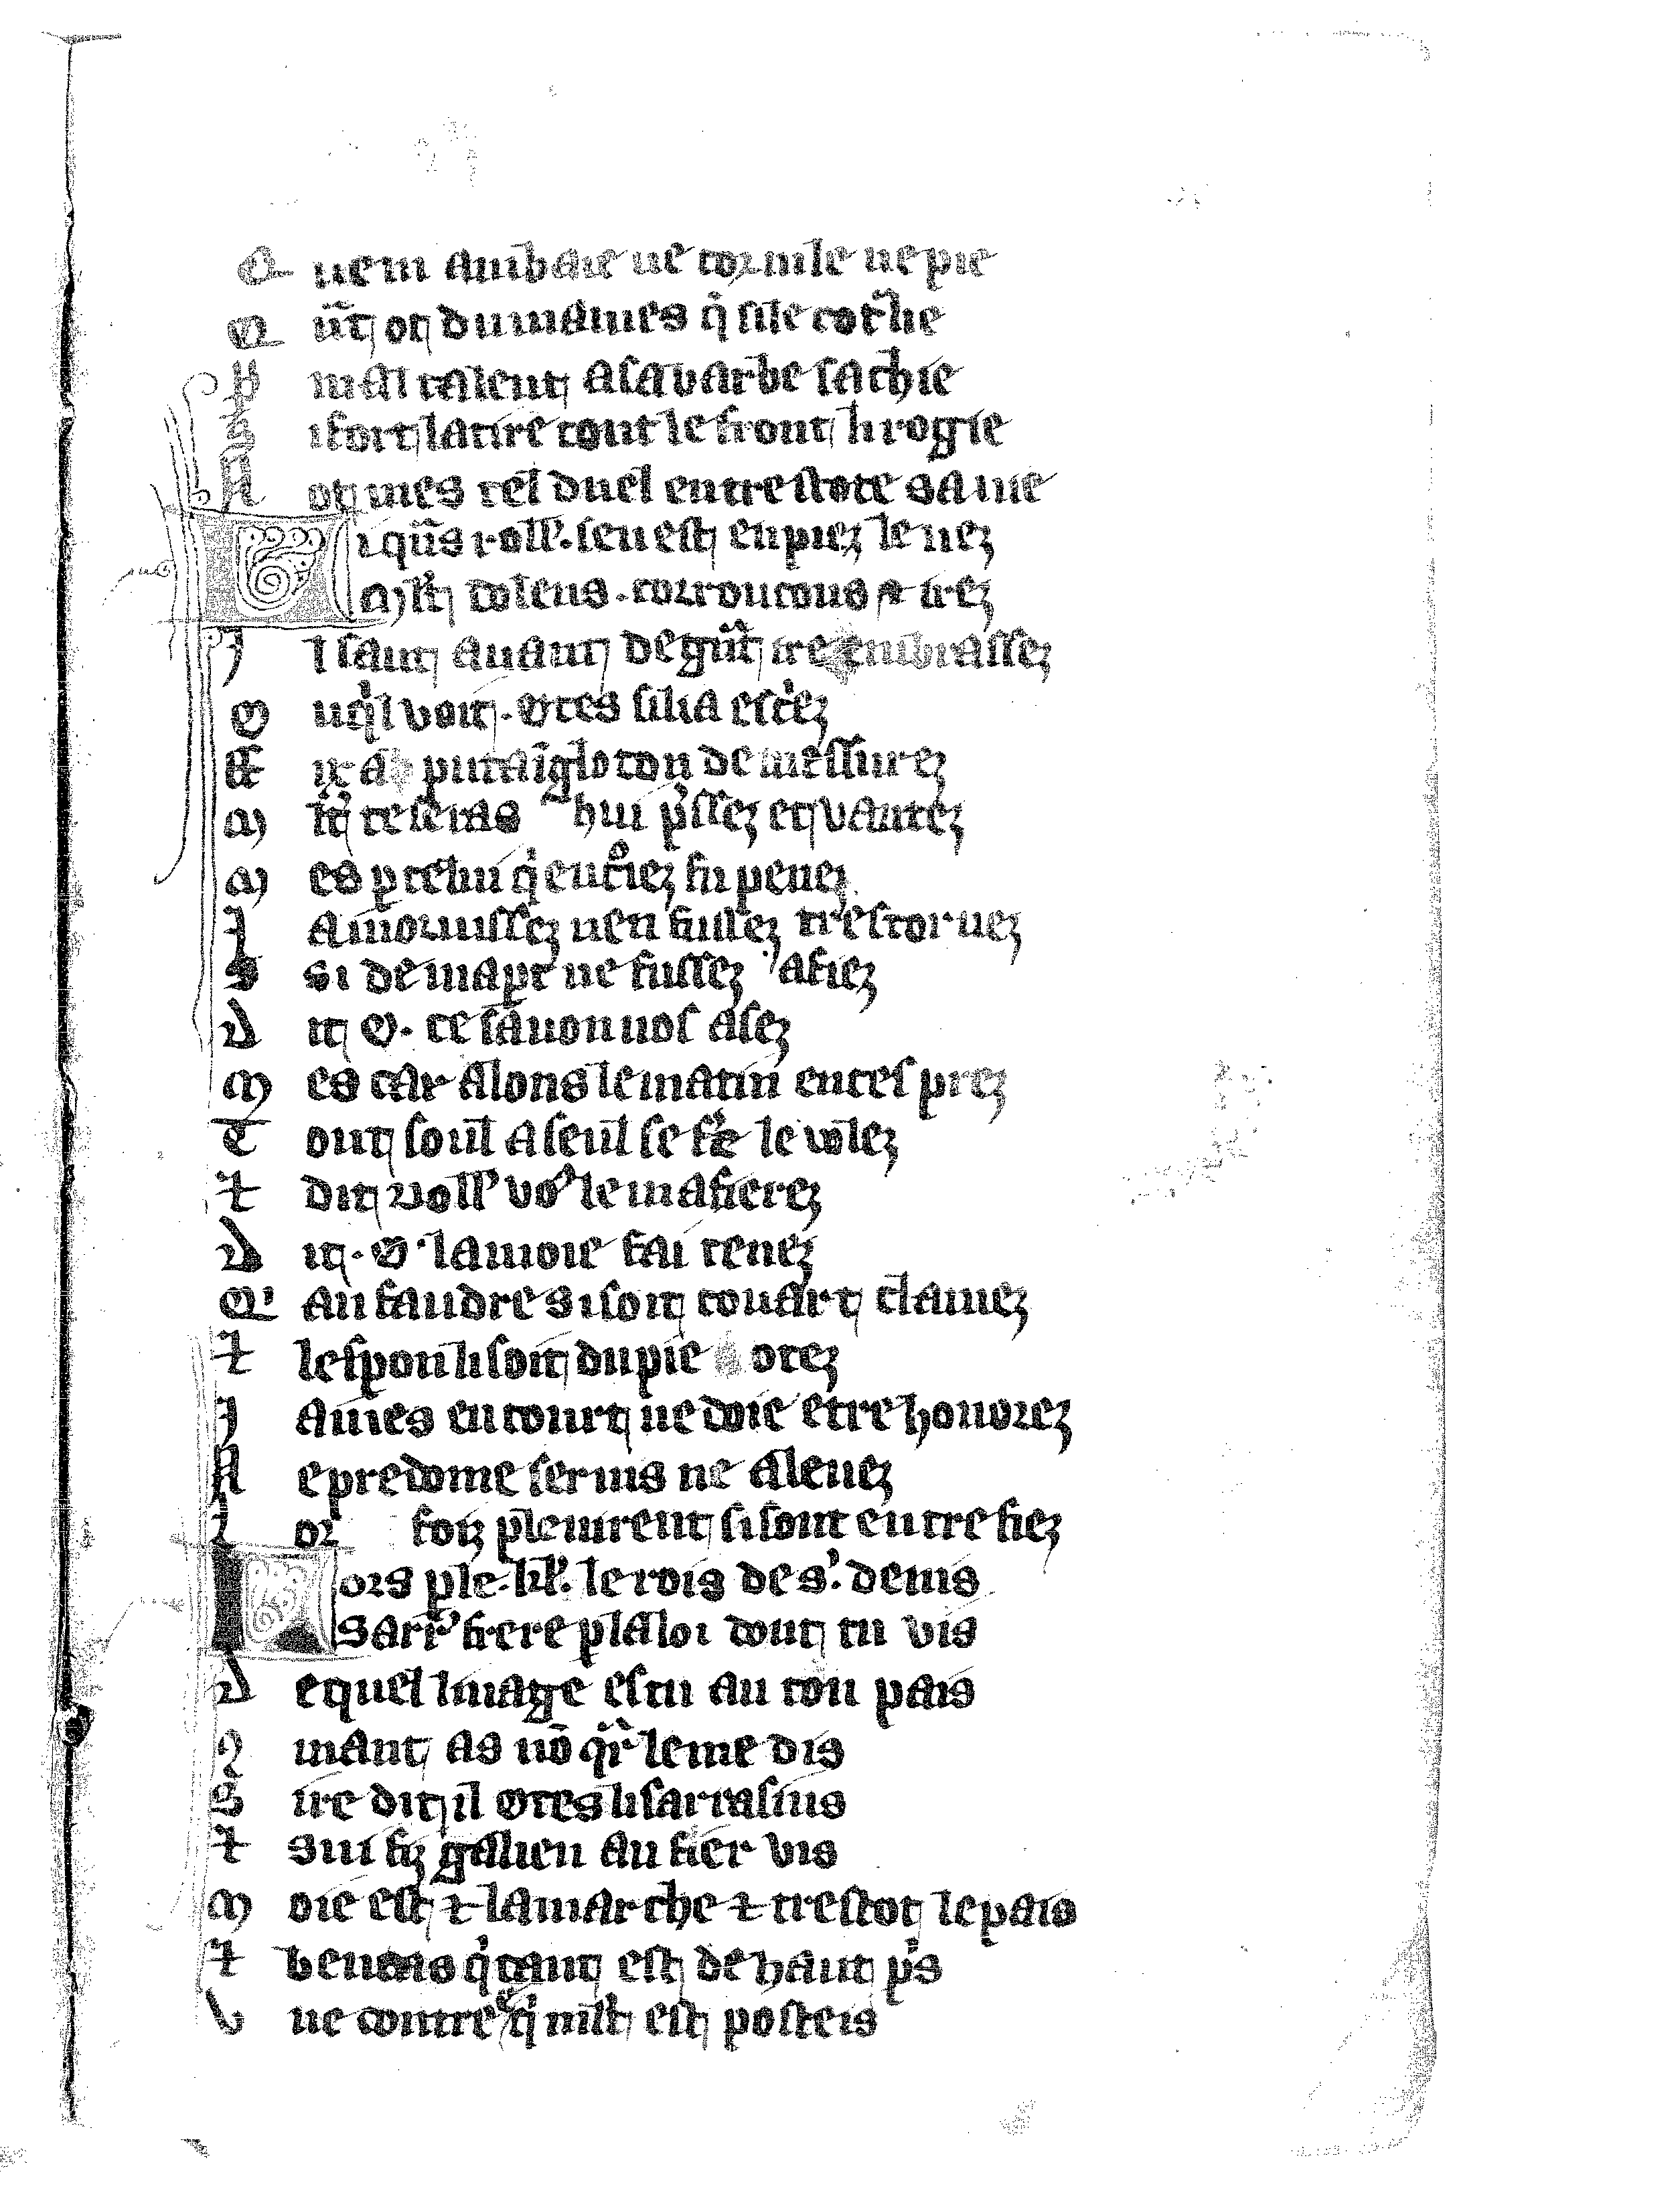 Q ue ni anibaie ne cornile ne pie
Q ūt ot dumaines q̉ si le cot̉lie
P mal talent a sa barbe sachie
S i fort la tire tout le front li rogie
N ot mes tel duel entrestote sa vie
L i qūs roll̉. sen est en piez levez
M lt̉ dolens. corroucous ⁊ irez
I l saut avant de gūt ire enbrassez
O u q̉l voit. Otes si li a escr̉ez
put aīgloton demesurez
M lt̉ te ieras hui p̉ssez et vantez
M es p cehui q̉ en cr̉iez fu penez
I a mōrnissez nen fussez trestornez
S si de mapt ne fussez afiez
D it O. ce savon nos asez
M es car alons le matin en ces prez
T out soul a seul se fe̊ le volez
⁊ dit Roll̉ vo⁹ le mafierez
D it. O. la moie fai tenez
Q̉ an faudre si soit couart clamez
⁊ lespon li soit du pie orez
I ames en court ne doie etre honorez
N e predome servis ne alevez
L or foiz plevirent si sont entrefiez
L ors ple. kl̉. le rois de s̉. denis
Sarr̉ frere p la loi dont tu vis
D e quel linage es tu au ton pais
9 mant as nō q̉r̉ le me dis
S ire dit il Otes li sarrasins
⁊ sui fiz galien au fier vis
M oie est ⁊ la marche ⁊ trestot le pais
⁊ q̉ tant est de haut p̉s
V ne contre q̉ mlt̉ est posteis